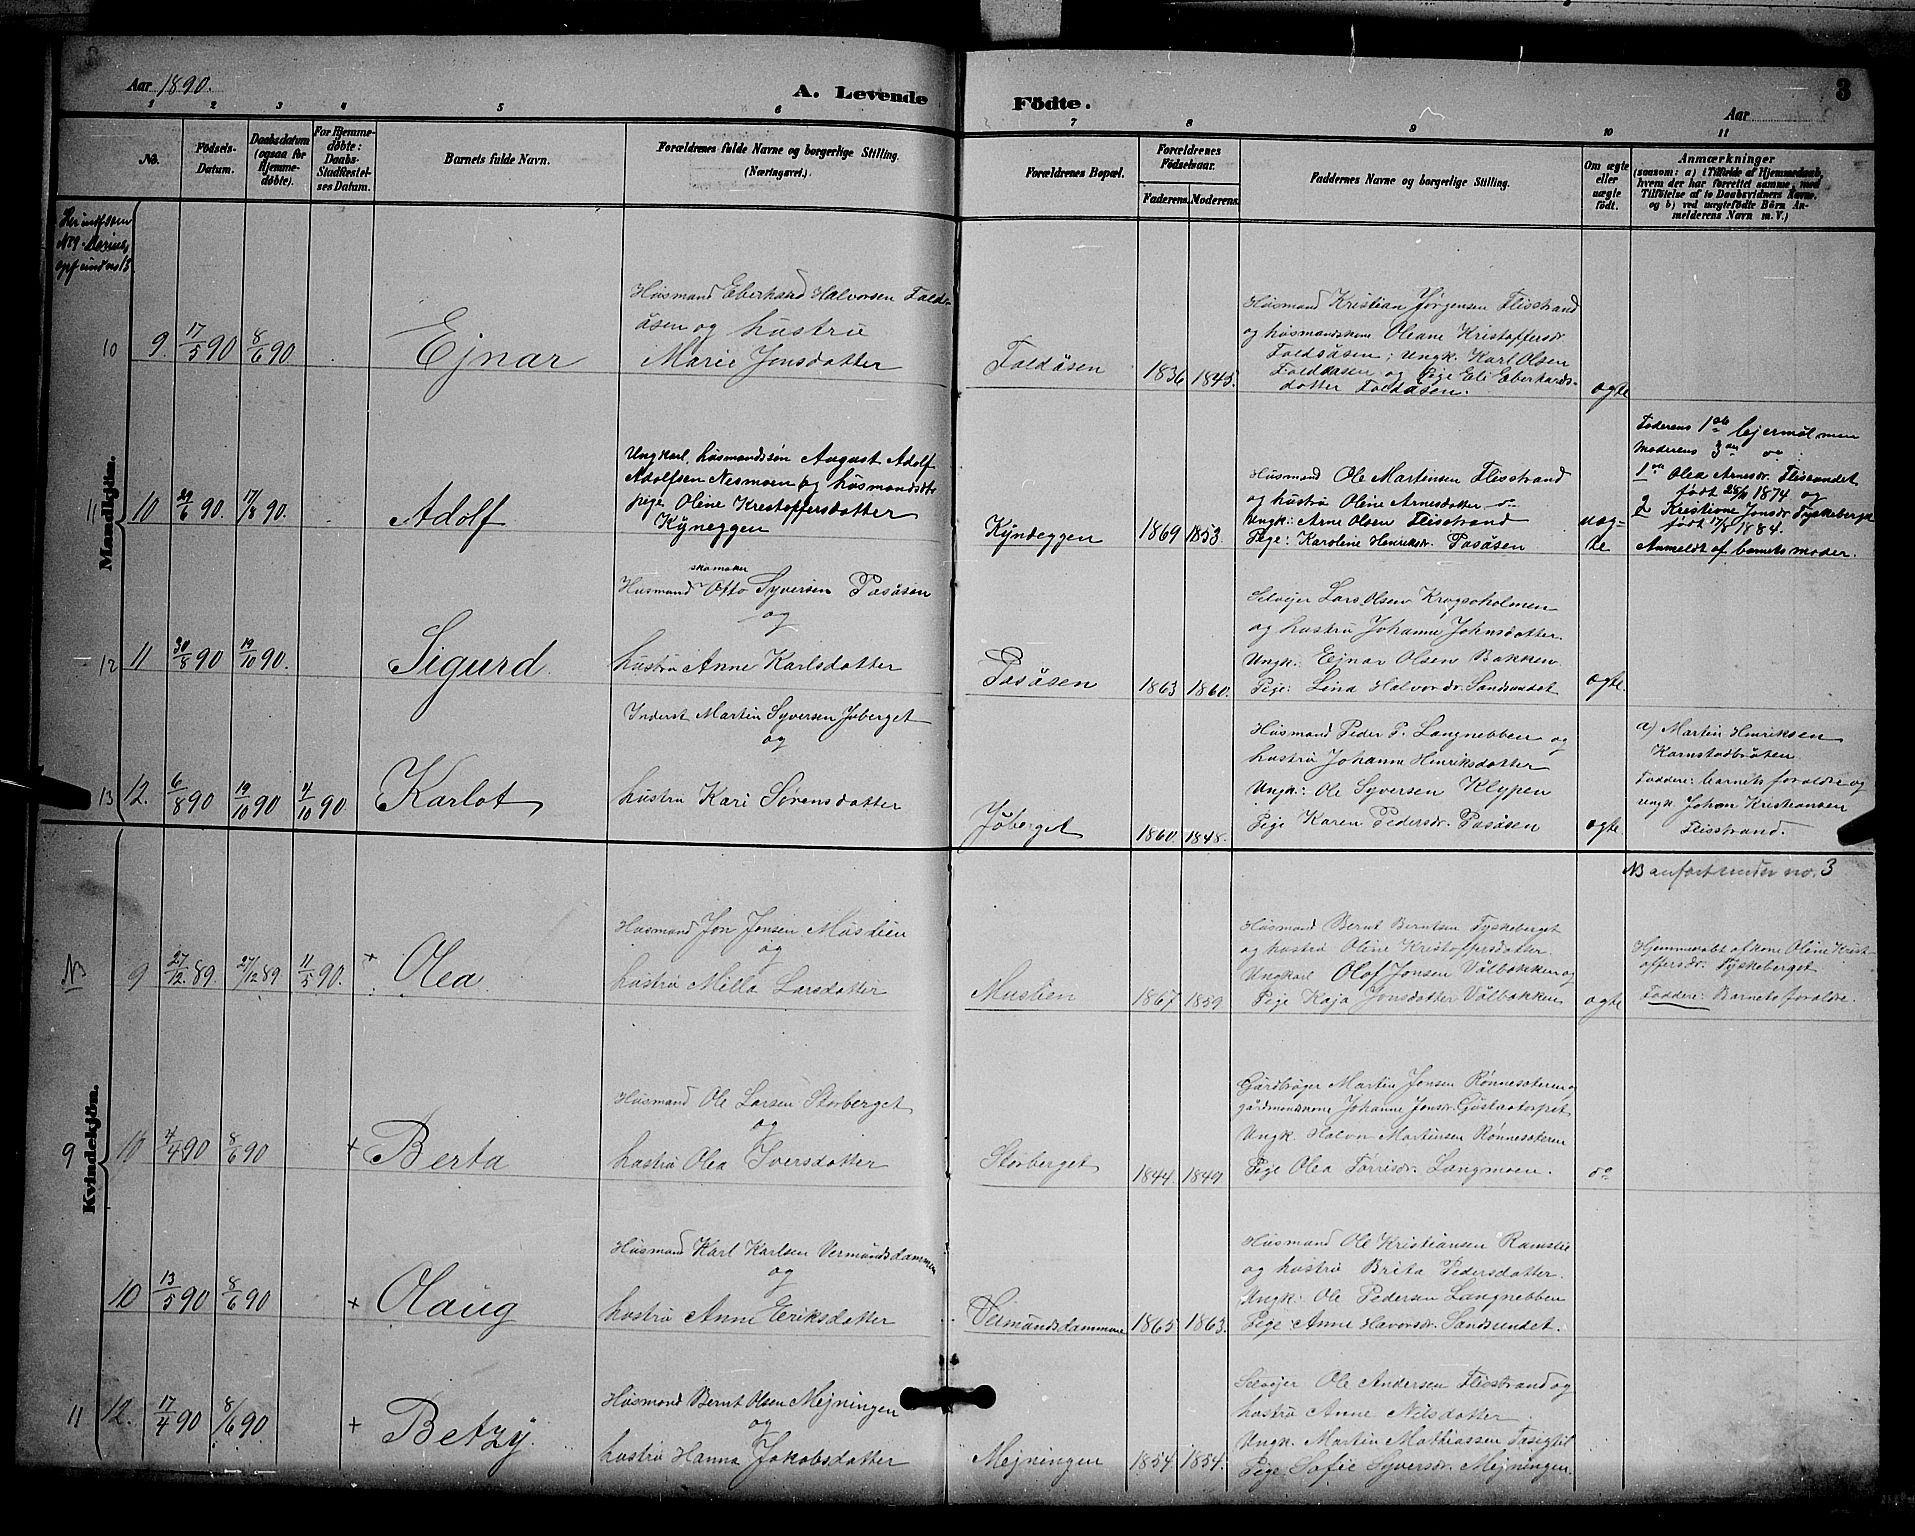 Aar 1890.
A. Levende Födte.
3
Aar
1 2 3 4 5 6 7 8 9 10 11
No.
Födsels-Datum.
Daabsdatum (ogsaa for Hjemmedöbte).
For Hjemmedöbte: Daabs-Stadfæstelses Datum.
Barnets fulde Navn.
Forældrenes fulde Navne og borgerlige Stilling.
(Næringsvei.)
Forældrenes Bopæl.
Forældrenes Födselsaar.
Faderens. Moderens.
Faddernes Navne og borgerlige Stilling.
Om ægte eller uægte födt.
Anmærkninger
(saasom: a) i Tilfælde af Hjemmedaab, hvem der har forrettet samme, med Tilföielse af to Daabsvidners Navne, og b) ved uægtefödte Börn Anmelderens Navn m. V.)
Mandkjön.
10 9. 17/5 90 8/6 90 Ejnar
Husmand Eberhard Halvorsen Fald-
åsen og hustru
Marie Jonsdatter
Faldåsen 1836 1845.
Husmand Kristian Jørgensen Flisstrand
og husmandskone Oleane Kristoffersdr.
Faldåsen; Ungk. Karl Olsen
Faldåsen og Pige Eli Eberhards-
datter Faldåsen.
ægte
11 10 29/6 90. 17/8 90. Adolf
Ungkarl, husmandssøn August Adolf
Adolfsen Nesmoen og husmandsdtr
pige Oline Kristoffersdatter
Kyneggen
Kyndeggen 1869 1853.
Husmand Ole Martinsen Flisstrand
og hustru Oline Arnesdatter do
Ungk: Arne Olsen Flisstrand
Pige: Karoline Henriksdr. Pasåsen
uæg-
te
Faderens 1ste lejermål men
Moderens 3die do:
1 Olea Arnesdr. Flissundet
født 1874 og
2 Kristiane Jonsdr. Tyskeberget
født 1884.
Anmeldt af barnets moder.
12 11 30/8 90 19/10 90. Sigurd.
skomaker
Husmand Otto Syversen Pasåsen
og
hustru Anne Karlsdatter
Pasåsen 1863 1860.
Selvejer Lars Olsen Krogsholmen
og hustru Johanne Johnsdatter.
Ungk: Ejnar Olsen Bakken
Pige: Lina Halvorsdr. Sandsundet
ægte.
13 12. 6/8 90 19/10 90 4/10 90 Karlot
Inderst Martin Syversen Joberget
og
hustru Kari Sørensdatter
Joberget 1860. 1848.
Husmand Peder P. Langnebben og
hustru Johanne Henriksdatter
Ungk: Ole Syversen Klypen
Pige Karen Pedersdr. Pasåsen
ægte.
a) Martin Henriksen
Karnstadbråten
Faddere: barnets forældre og
ungk. Johan Kristiansen
Flisstrand.
Kvindekjön.
NB anført under no. 3
NB 9 27/12 89. 27/12 89 11/5 90. + Olea
Husmand Jon Jonsen Mustien
og
hustru Milla Larsdatter
Mustien 1867 1859
Husmand Bernt Berntsen Tyskeberget
og hustru Oline Kristoffersdatter.
Ungkarl Olaf Jonsen Vålbakken og
Pige Kaja Jonsdatter Vålbakken
ægte
Hjemmedøbt af kone Oline Krist-
offersdr. Tyskeberget
Faddere: Barnets forældre.
9 10 4/4 90 8/6 90 + Berta
Husmand Ole Larsen Storberget
og
hustru Olea Iversdatter
Storberget 1844. 1849.
Gårdbruger Martin Jonsen Rønnesæteren og
gårdmandskone Johanne Jonsdr. Gustavtorpet
Ungk. Halvor Martinsen Rønnesæteren
Pige Olea Torrisdr. Langmoen.
do
10 13/5 90 8/6 90 + Olaug
Husmand Karl Karlsen Vermundsdammen
og
hustru Anne Eriksdatter
Vermundsdammen 1865 1863.
Husmand Ole Kristiansen Ramstie
og hustru Brita Pedersdatter.
Ungk: Ole Pedersen Langnebben
Pige Anne Havorsdr. Sandsundet.
11 12. 17/4 90 8/6 90 + Betzy.
Husmand Bernt Olsen Mejningen
og
hustru Hanna Jakobsdatter
Mejningen 1854. 1854.
Selvejer Ole Andersen Flisstrand og
hustru Anne Nilsdatter
Ungk. Martin Mathiassen
Pige Sofie Syversdr. Mejningen.